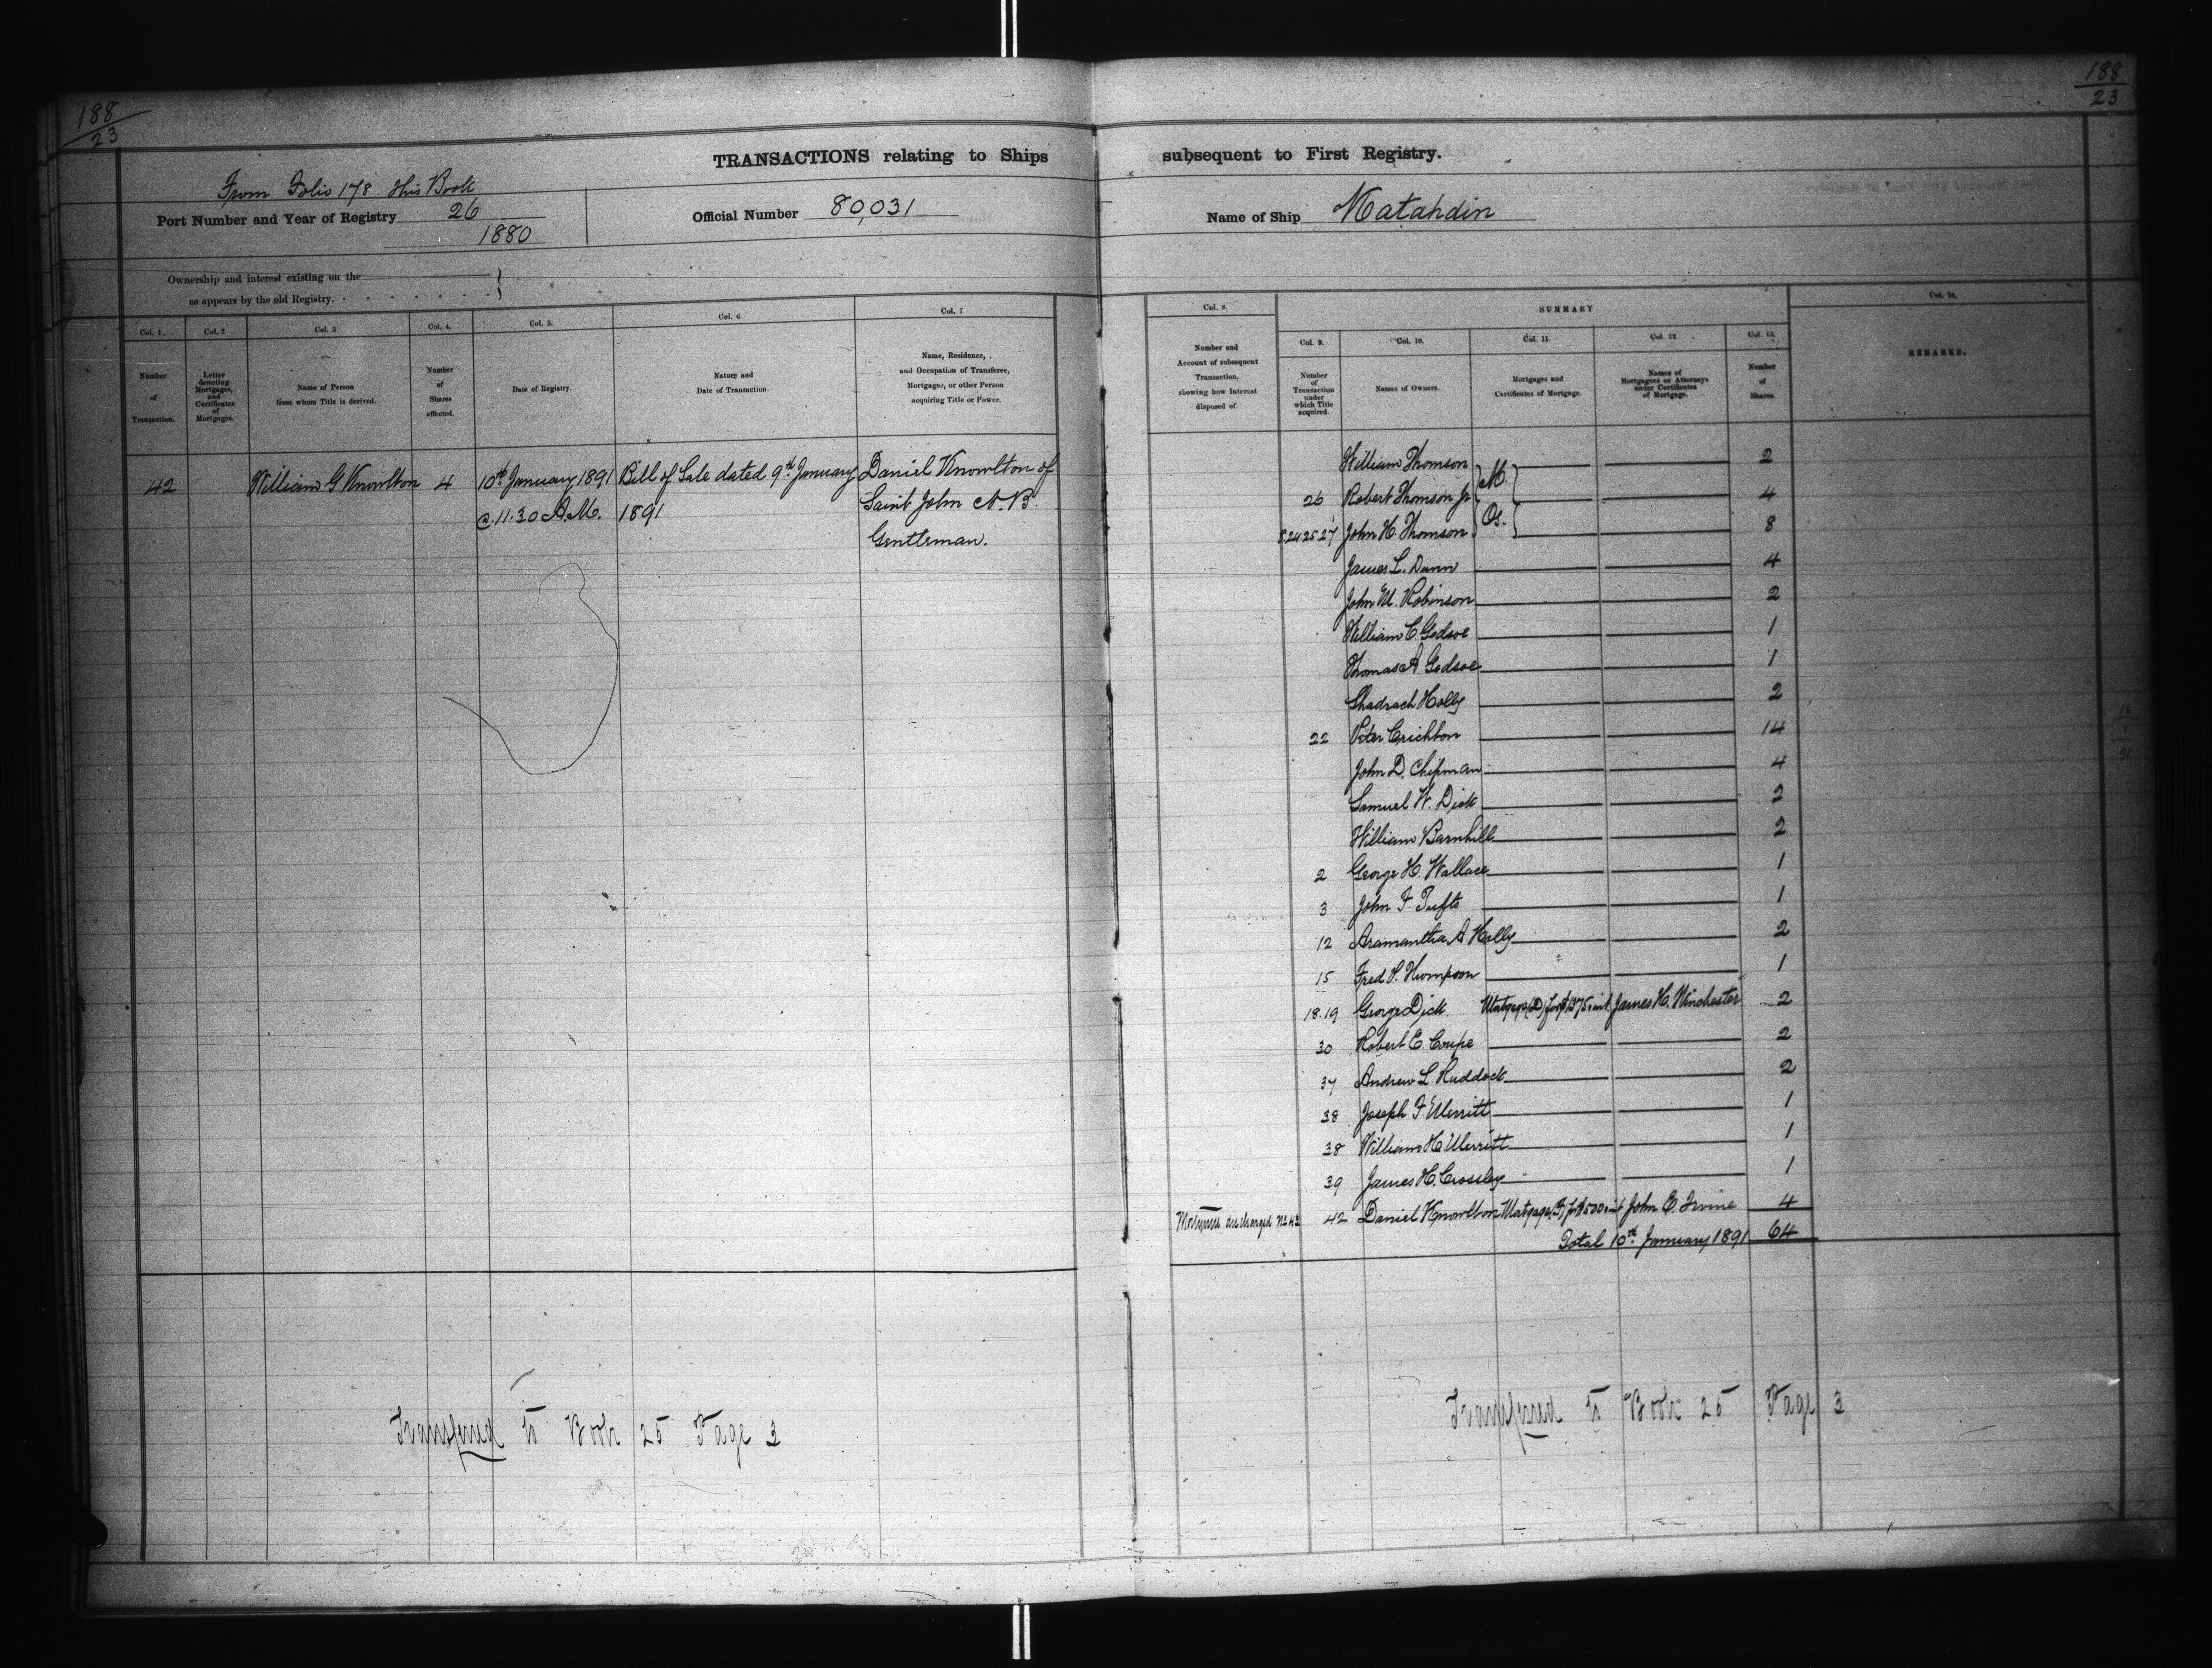 188
23
188
23
TRANSACTIONS relating to Ships subsequent to First Registry.
From Folio 178 this Book
Port Number and Year of Registry 26
1880
Official Number 80,031
Name of Ship Katahdin
Ownership and interest existing on the
as appears by the old Registry.
Col. 1. Col. 2 Col. 3 Col. 4. Col. 5. Col. 6. Col. 7
Number of Transaction.
Letter denoting Mortgages, and Certificates of Mortgages.
Name of Person from whom Title is derived.
Number of Shares affected.
Date of Registry.
Nature and Date of Transaction.
Name, Residence, and Occupation of Transferee, Mortgagee, or other Person acquiring Title or Power.
42 William G Knowlton 4 10th January 1891 Bill of Sale dated 9th January Daniel Knowlton of
@ 11.30 A.M. 1891 Saint John N.B.
Gentleman.
Transferred to Book 25 Page 3
Col. 8.
SUMMARY
Col. 14.
Col. 9. Col. 10. Col. 11. Col. 12 Col. 13.
Number and Account of subsequent Transaction, showing how Interest disposed of.
Number of Transaction under which Title acquired.
Names of Owners.
Mortgages and Certificates of Mortgage.
Names of Mortgagees or Attorneys under Certificates of Mortgage.
Number of Shares.
REMARKS.
William Thomson 2
26 Robert Thomson Jr M. 4
8.24.25.27 John H. Thomson Os. 8
James L. Dunn 4
John M. Robinson 2
William C. Godsoe 1
Thomas A. Godsoe 1
Shadrach Holly 2
22 Peter Crichton 14
John D. Chipman 4
Samuel W. Dick 2
William Barnhill 2
2 George H. Wallace 1
3 John F. Tufts 1
12 Aramantha A Holly 2
15 Fred P. Thompson 1
18.19 George Dick Mortgage (D) for \$1375 & int James H. Winchester 2
30 Robert E. Coupe 2
37 Andrew L. Ruddock 2
38 Joseph F Merritt 1
38 William H Merritt 1
39 James H. Crossley 1
Mortgage discharged No 43 42 Daniel Knowlton Mortgage for \$500 & int John E. Irvine 4
Total 10th January 1891 64
Transferred to Book 25 Page 3